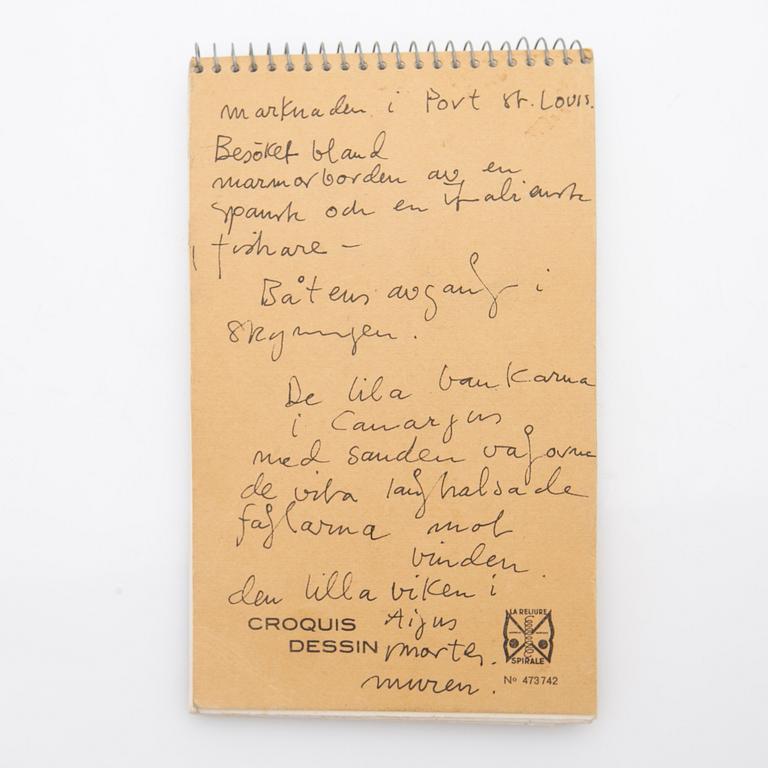 marknaden i Port St. Louis.
Besöket bland
marmorborden av en
spansk och en italiensk
fiskare –
Båtens avgang i
skymningen.
De lila bankarna
i Camargus
med sanden vågorna
de vita långhalsade
fåglarna mot
vinden
den lilla viken i
Aigus
mortes.
muren.
CROQUIS
DESSIN
LA RELIURE
SPIRALE
No 473742